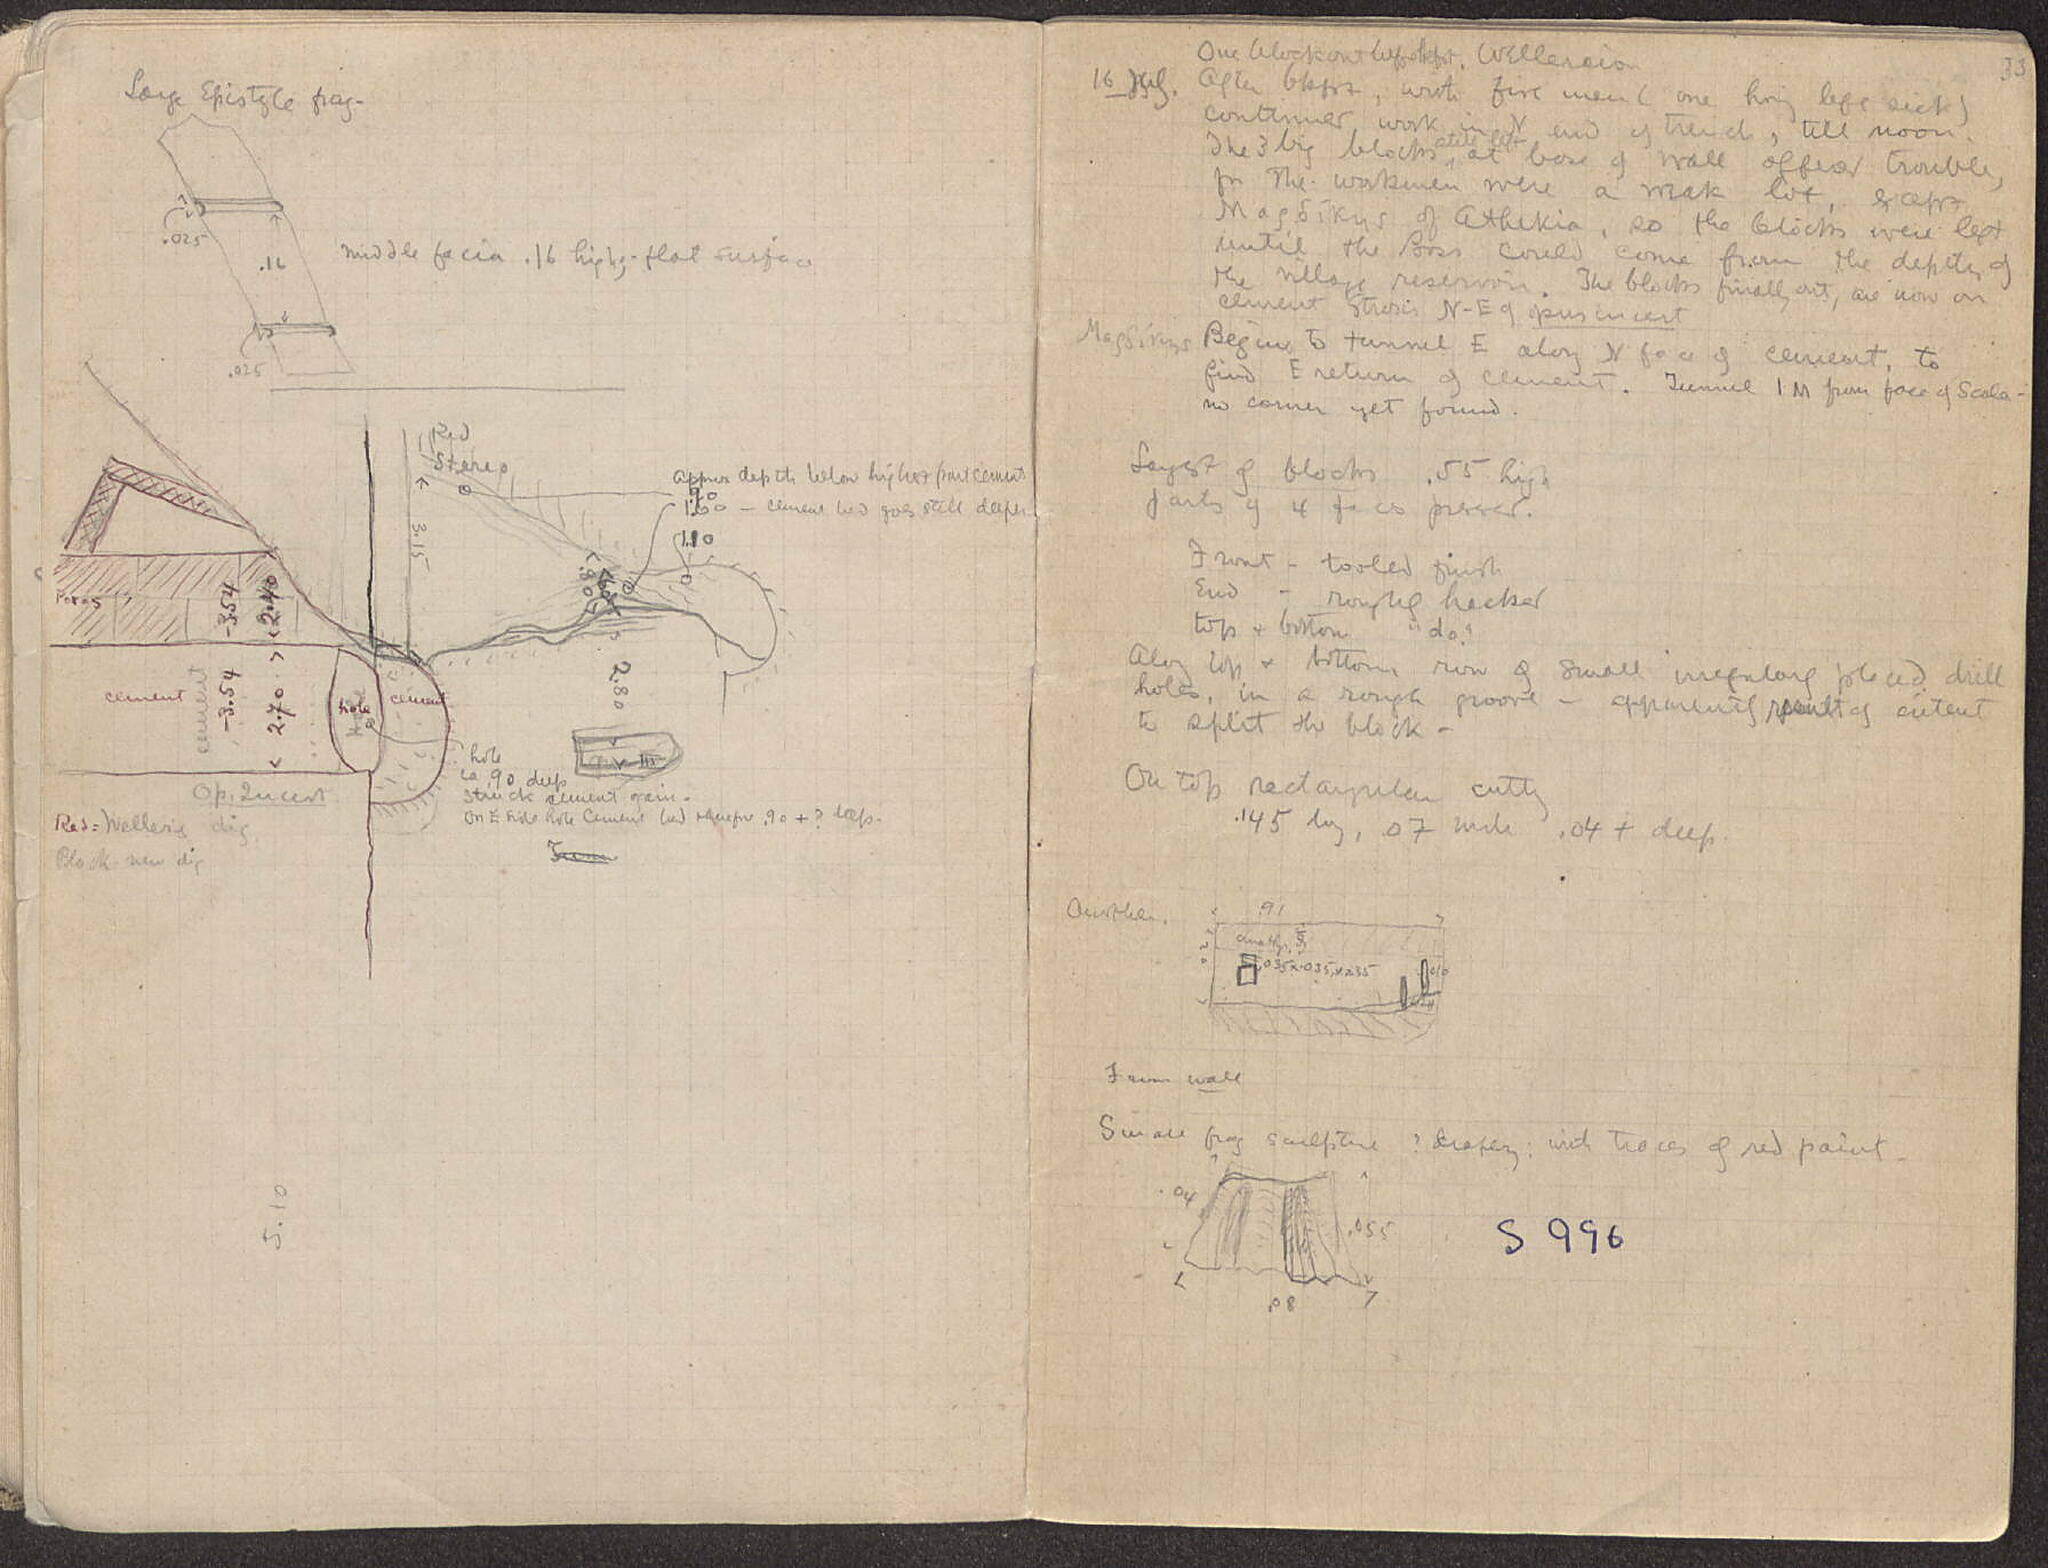 Large Epistyle frag-
.025
.16
middle facia .16 high,- flat surface
.025
Red
Stereo
3.15
approx depth below highest point cement
.90
1.60 — cement bed goes still deeper
1.10
.80
Poros
-3.54
2.40
cement
cement
-3.54
2.70
hole
cement
2.80
hole
ca .90 deep
struck cement again-
on E side hole cement bed therefore .90 + ? deep-
Op. Incert
Red = Weller's dig
Black- new dig
5.10
33
One block out before bkfst. Wellereion
16 After bkfst, with five men (one hvig left sick)
continued work in N end of trench, till noon.
The 3 big blocks at base of wall offered trouble,
for the workmen were a weak lot, except
Magsikys of Athikia, so the blocks were left
until the Boss could come from the depths of
the village reservoir. The blocks finally out, are now on
cement Strosis N-E of opus incert
Magsikys Begins to tunnel E along N face of cement, to
find E return of cement. Tunnel 1 M from face of Scala-
no corner yet found.
Largest of blocks .55 high
parts of 4 faces preser.
Front - tooled finish
End - roughly hacked
top + bottom "do"
Along top + bottom row of small irregularly placed drill
holes, in a rough groove - apparently result of intent
to split the block -
On top rectangular cuttg
.145 lng, .07 wide .04 + deep.
Another.
.91
.035x.035x.035
From wall
Small frag sculpture ? drapery: with traces of red paint-
.04
.055
.08
S 996